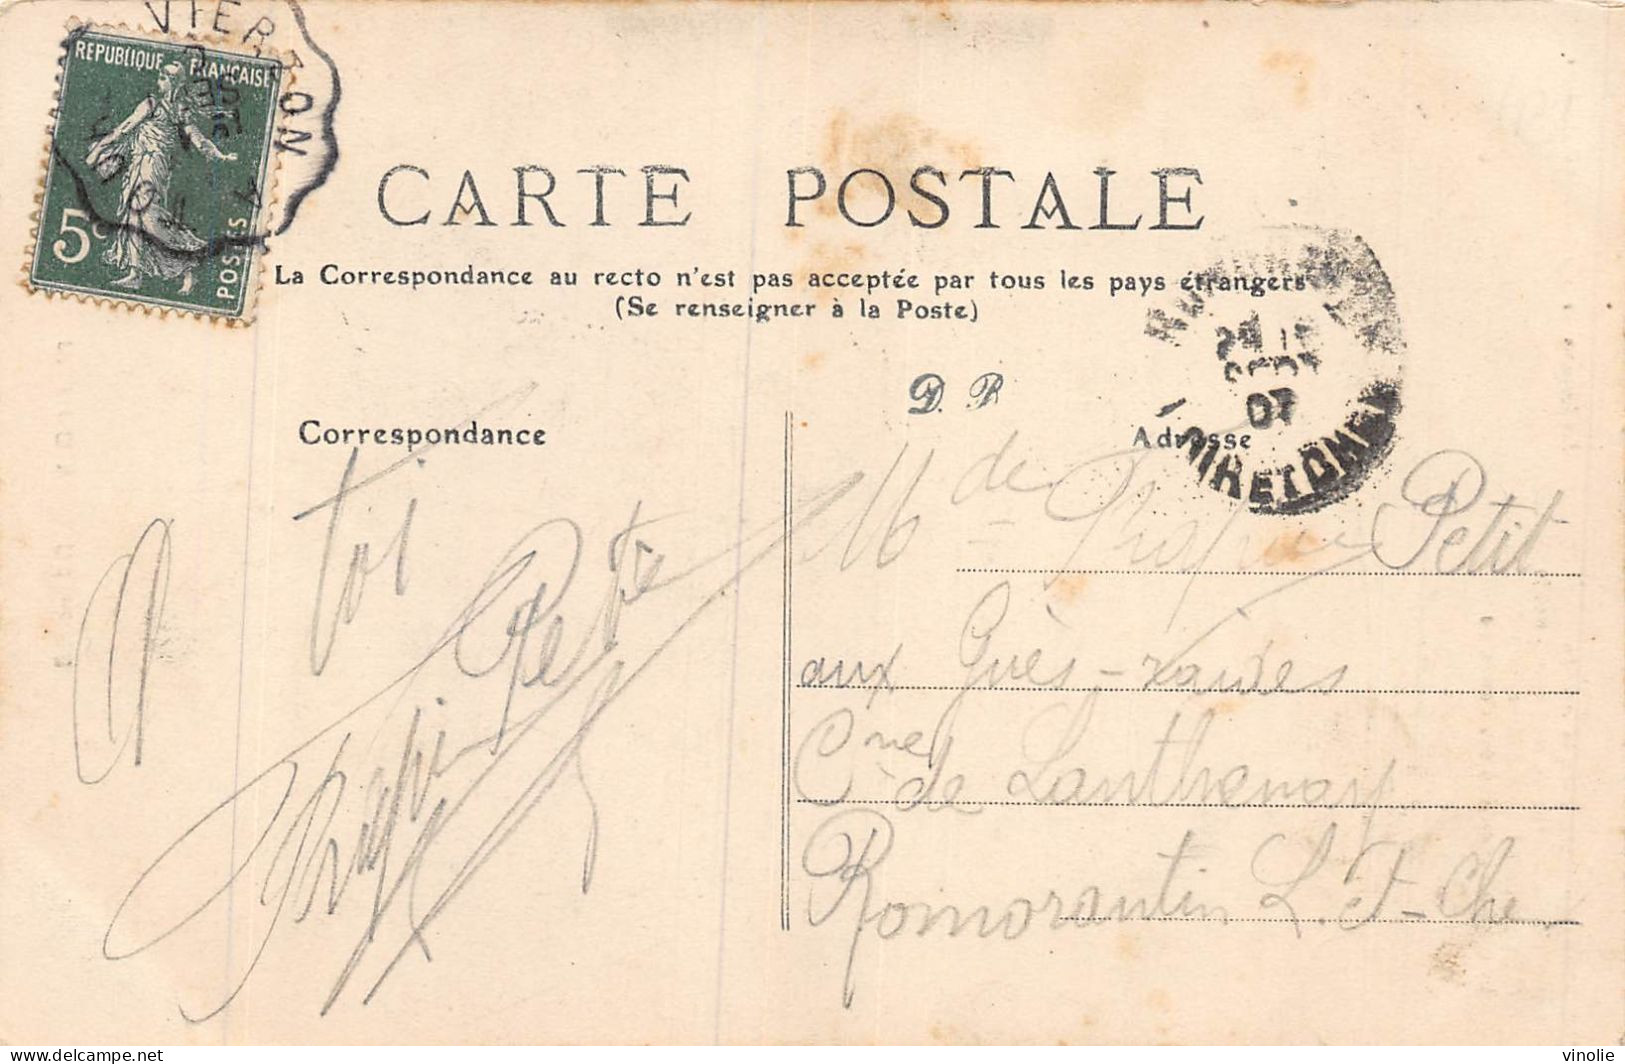 REPUBLIQUE FRANÇAISE
5c
POSTES
VIERZON A
CARTE POSTALE
La Correspondance au recto n'est pas acceptée par tous les pays étrangers
(Se renseigner à la Poste)
D. P.
07
LOIR ET CHER
Correspondance
Adresse
Mde Petit
aux
Cne de Lanthenay
Romorantin L. et Che
delcampe.net
vinolie